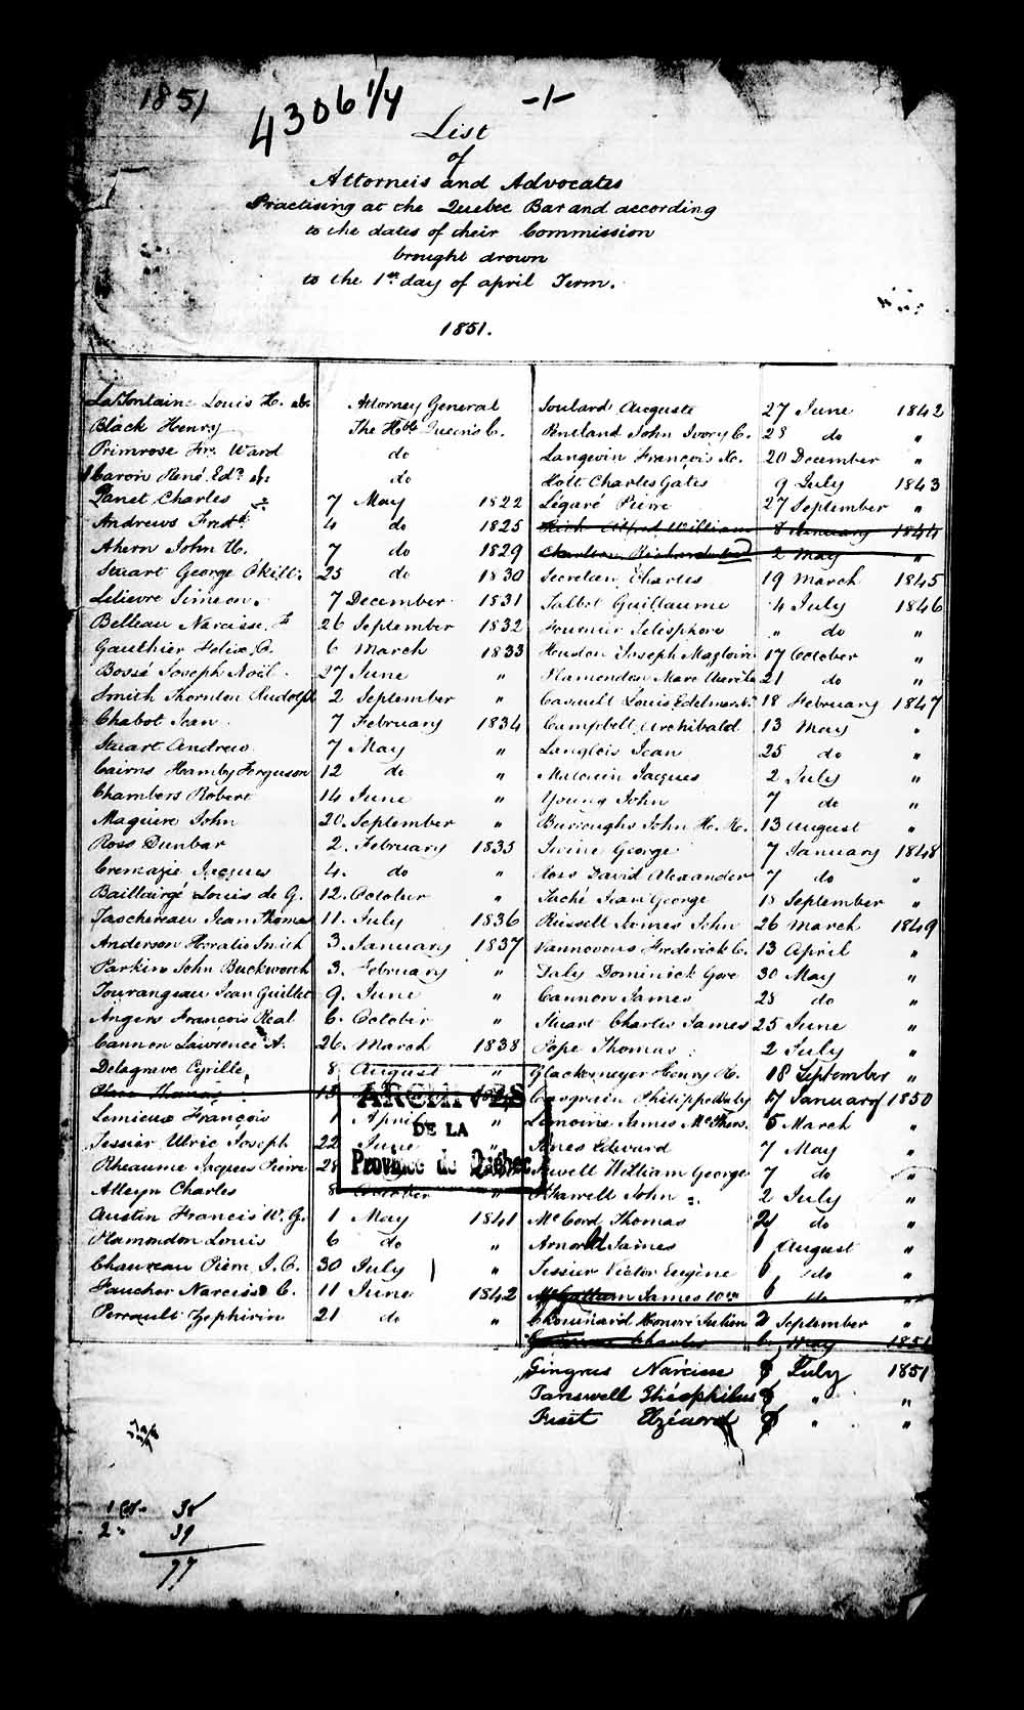 1851
4306 1/4
-1-
List
of
Attorneis and Advocates
Practising at the Quebec Bar and according
to the dates of their Commission
brought drown
to the 1st day of april Term.
1851.
LaFontaine Louis H. Attorney General
Black Henry The Hble Queen's C.
Primrose Fr. Ward do
Caron René Edd do
Panet Charles 7 May 1822
Andrews Fredk 4 do 1825
Ahern John H. 7 do 1829
Stuart George Okill 25 do 1830
Lelievre Simeon. 7 December 1831
Belleau Narcisse F 26 September 1832
Gauthier Felix G. 6 March 1833
Bossé Joseph Noël 27 June "
Smith Thornton Rudolph 2 September "
Chabot Jean 7 February 1834
Stuart Andrew 7 May "
Cairns Hamby Ferguson 12 do "
Chambers Robert 14 June "
Maguire John 20. September "
Ross Dunbar 2. February 1835
Cremazie Jacques 4. do "
Baillairgé Louis de G. 12. October "
Taschereau Jean Thomas 11. July 1836
Anderson Horatio Smith 3. January 1837
Parkin John Buckworth 3. February "
Tourangeau Jean Guillet 9. June "
Angers François Real 6. October "
Cannon Lawrence A. 26. March 1838
Delagrave Cyrille 8 August "
Thomas 13
Lemieux François 1 April "
Tessier Ulric Joseph 22 June "
Rheaume Jacques Pierre 28
Alleyn Charles 8 October "
Austin Francis W. G. 1 May 1841
Plamondon Louis 6 do "
Chauveau Pierre J. O. 30 July "
Faucher Narcisse C. 11 June 1842
Perrault Zephirin 21 do "
Soulard Auguste 27 June 1842
Pentland John Ivory C. 28 do "
Langevin François Xr. 20 December "
Holt Charles Gates 9 July 1843
Légaré Pierre 27 September "
Alfred William 8 January 1844
Charlton Richard 2 May "
Secretan Charles 19 March 1845
Talbot Guillaume 4 July 1846
Fournier Télésphore " do "
Houdon Joseph Magloire 17 October "
Plamondon Marc Aurèle 21 do "
Casault Louis Edelmard 18 February 1847
Campbell Archibald 13 May "
Langlois Jean 25 do "
Malouin Jacques 2 July "
Young John 7 do "
Burroughs John H. R. 13 august "
Irvine George 7 January 1848
Ross David Alexander 7 do "
Taché Jean George 18 September "
Russell James John 26 March 1849
Vannovous Frederick C. 13 April "
Daly Dominick Gore 30 May "
Cannon James 28 do "
Stuart Charles James 25 June "
Pope Thomas 2 July "
Glackemeyer Henry R. 18 September "
Casgrain Philippe Baby 17 January 1850
Lemoine James McPhers. 5 March "
Jones Edward 7 May "
Sewell William George 7 do "
O'Farrell John 2 July "
McCord Thomas do "
Arnold James August "
Tessier Victor Eugène 6 do "
James Wm 6 do "
Chouinard Honoré Julien 2 September "
Charles May 1851
Gingras Narcisse July 1851
Tarswell Théophilus " "
Fuset Elzéard " "
ARCHIVES
DE LA
Province de Québec
1 Col- 38
2 " 39
77